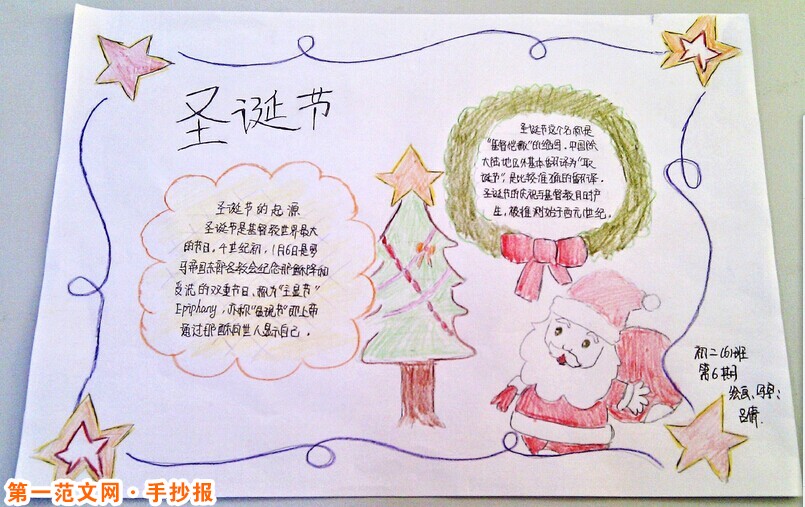 圣诞节
圣诞节的起源
圣诞节是基督教世界最大
的节日。4世纪初，1月6日是罗
马帝国东部各教会纪念耶稣降和
受洗的双重节日、称为"主显节"
Epiphany，亦称"显现节"即上帝
通过耶稣向世人显示自己。
圣诞节这个名称是
"基督弥撒"的缩写。中国
大陆地区外基本翻译为"耶
诞节"，是比较准确的翻译。
圣诞节的庆祝与基督教同时产
生，被推测始于西元1世纪。
初二(6)班
第6期
绘画、
第一范文网·手抄报